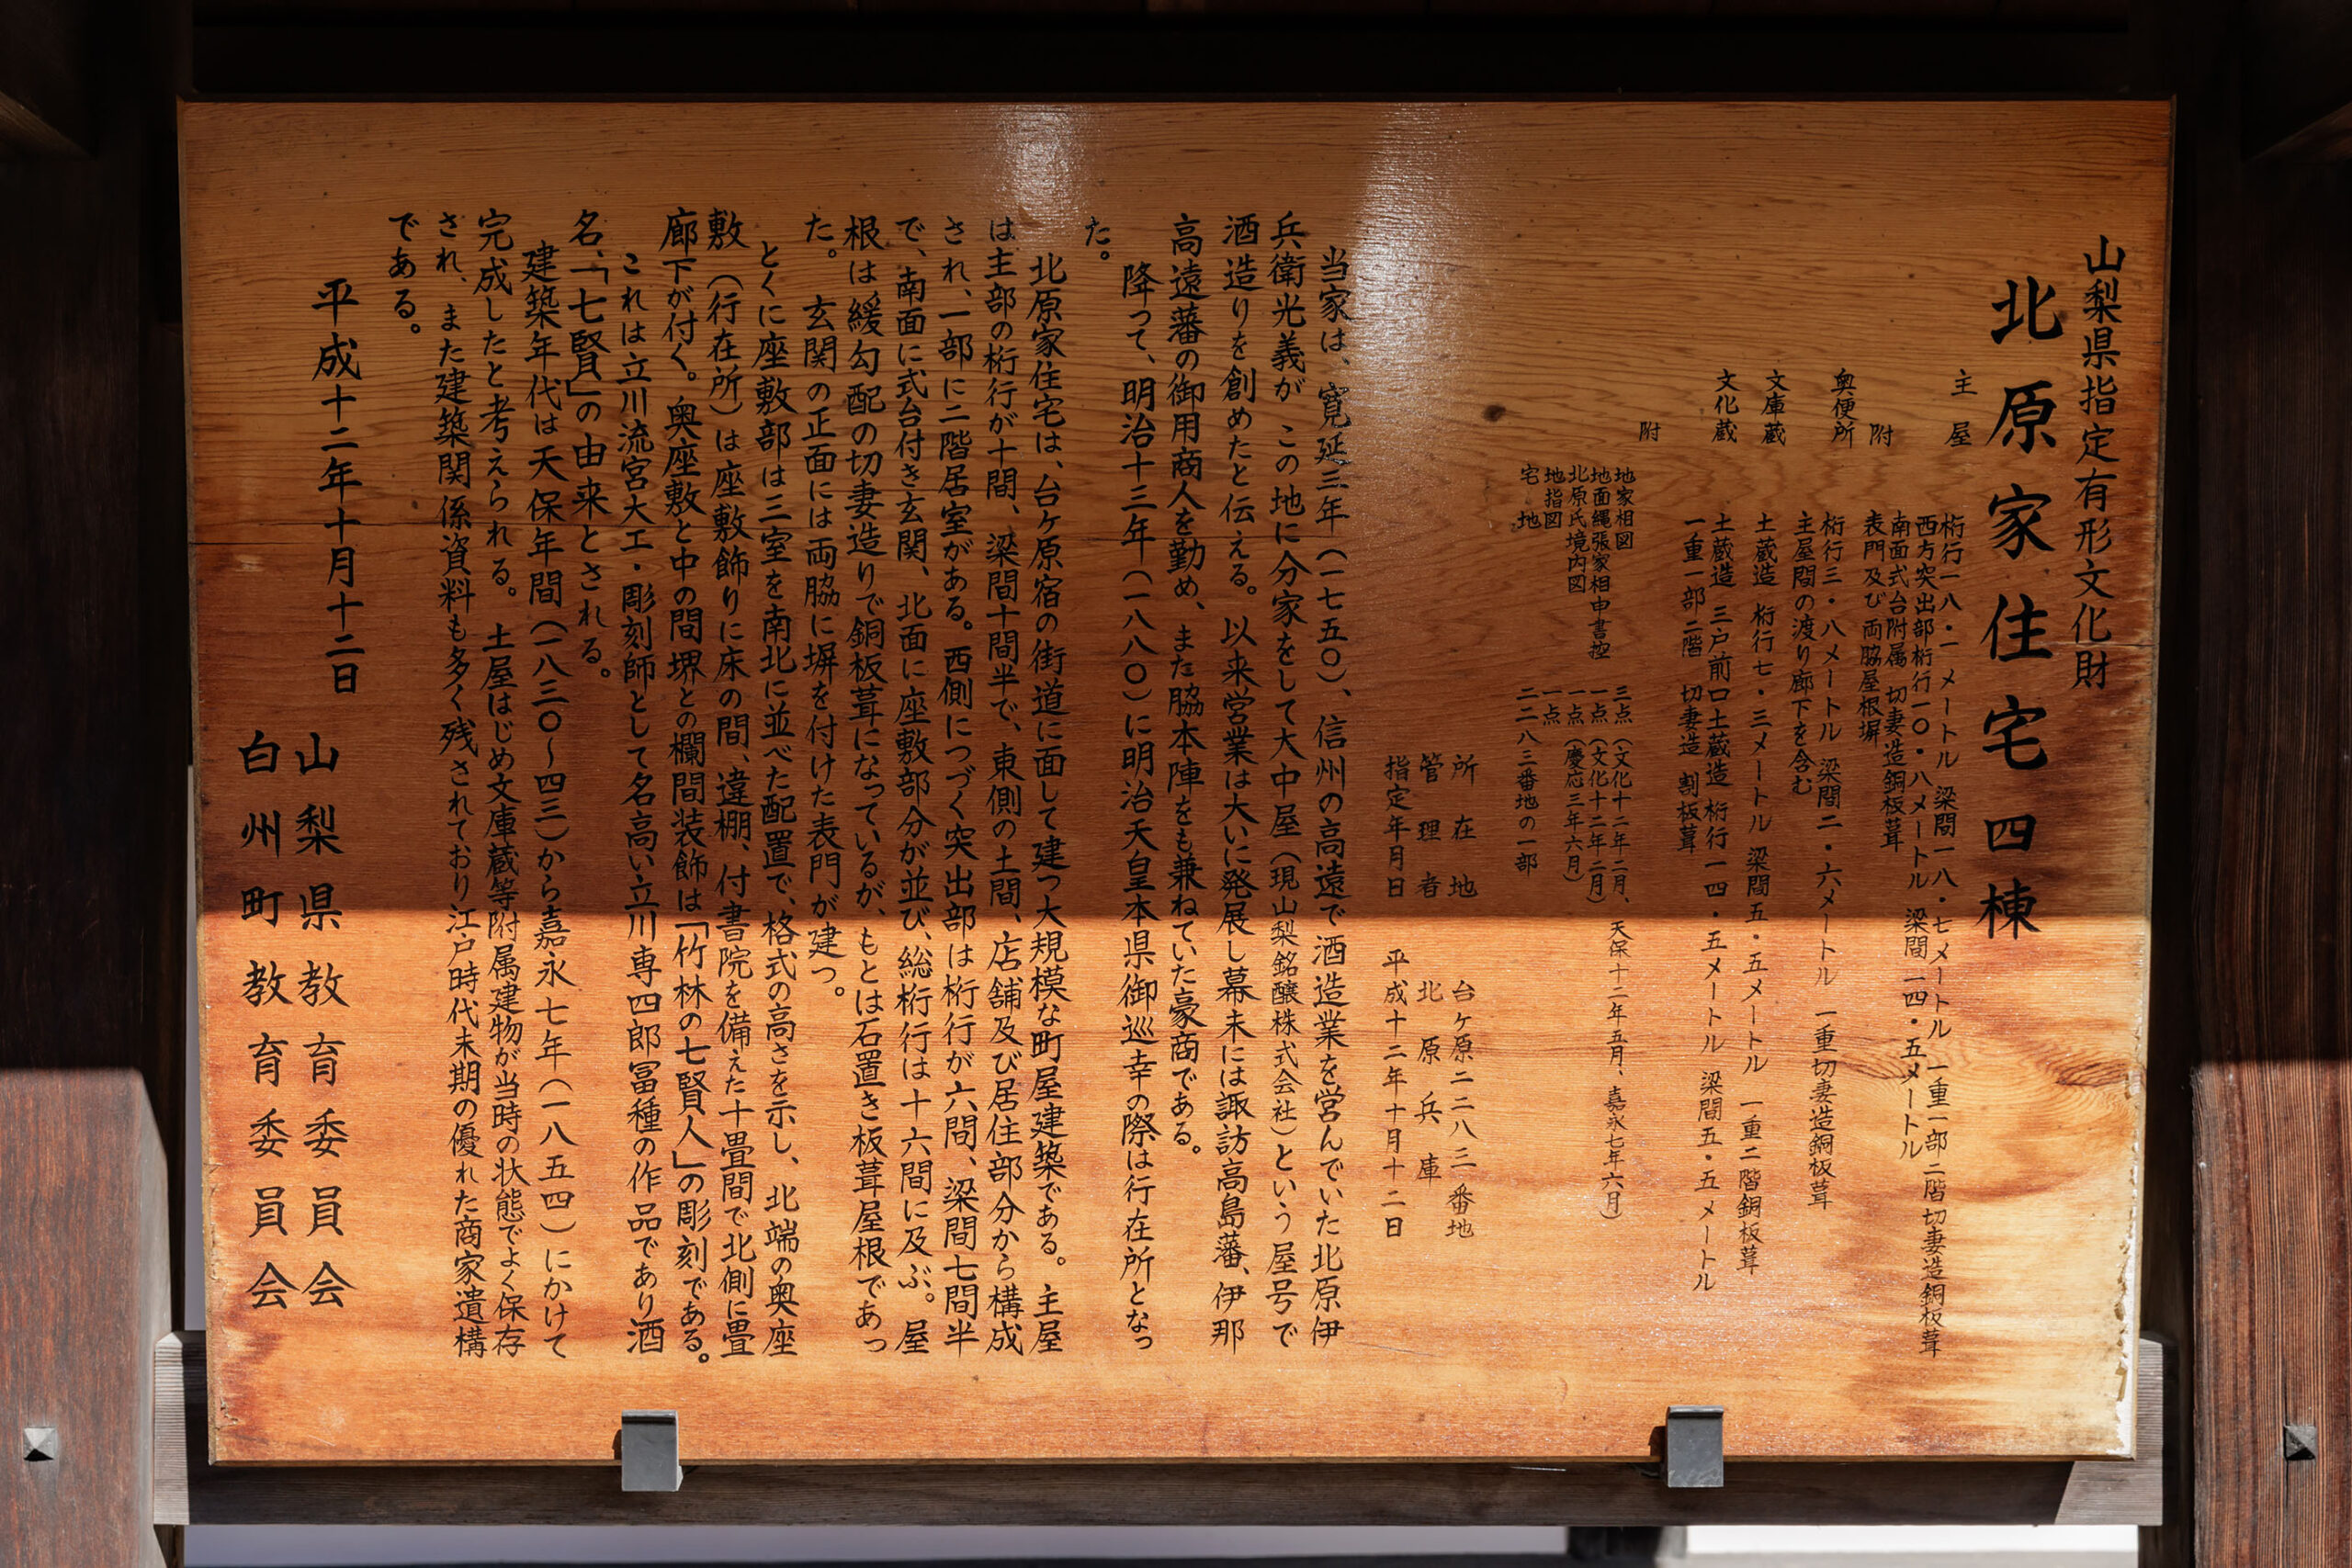 山梨県指定有形文化財
北原家住宅四棟
主屋 桁行一八・一メートル 梁間一八・七メートル 一重一部二階切妻造銅板葺
西方突出部桁行一〇・八メートル 梁間一四・五メートル
南面式台附属 切妻造銅板葺
附 表門及び両脇屋根塀
奥便所 桁行三・八メートル 梁間二・六メートル 一重切妻造銅板葺
主屋間の渡り廊下を含む
文庫蔵 土蔵造 桁行七・三メートル 梁間五・五メートル 一重二階銅板葺
文化蔵 土蔵造 三戸前口土蔵造 桁行一四・五メートル 梁間五・五メートル
一重一部二階 切妻造 割板葺
附 地家相図 三点(文化十二年二月、天保十二年五月、嘉永七年六月)
地面縄張家相申書控 一点(文化十二年二月)
北原氏境内図 一点(慶応三年六月)
地指図 一点
宅地 二二八三番地の一部
所在地 台ヶ原二二八三番地
管理者 北原兵庫
指定年月日 平成十二年十月十二日
当家は、寛延三年(一七五〇)、信州の高遠で酒造業を営んでいた北原伊
兵衛光義が この地に分家をして大中屋(現山梨銘醸株式会社)という屋号で
酒造りを創めたと伝える。以来営業は大いに発展し幕末には諏訪高島藩、伊那
高遠藩の御用商人を勤め、また脇本陣をも兼ねていた豪商である。
降って、明治十三年(一八八〇)に明治天皇本県御巡幸の際は行在所となっ
た。
北原家住宅は、台ヶ原宿の街道に面して建つ大規模な町屋建築である。主屋
は主部の桁行が十間、梁間十間半で、東側の土間、店舗及び居住部分から構成
され、一部に二階居室がある。西側につづく突出部は桁行が六間、梁間七間半
で、南面に式台付き玄関、北面に座敷部分が並び、総桁行は十六間に及ぶ。屋
根は緩勾配の切妻造りで銅板葺になっているが、もとは石置き板葺屋根であっ
た。玄関の正面には両脇に塀を付けた表門が建つ。
とくに座敷部は三室を南北に並べた配置で、格式の高さを示し、北端の奥座
敷(行在所)は座敷飾りに床の間、違棚、付書院を備えた十畳間で北側に畳
廊下が付く。奥座敷と中の間堺との欄間装飾は「竹林の七賢人」の彫刻である。
これは立川流宮大工・彫刻師として名高い立川専四郎冨種の作品であり酒
名、「七賢」の由来とされる。
建築年代は天保年間(一八三〇~四三)から嘉永七年(一八五四)にかけて
完成したと考えられる。土屋はじめ文庫蔵等附属建物が当時の状態でよく保存
され、また建築関係資料も多く残されており江戸時代末期の優れた商家遺構
である。
平成十二年十月十二日
山梨県教育委員会
白州町教育委員会